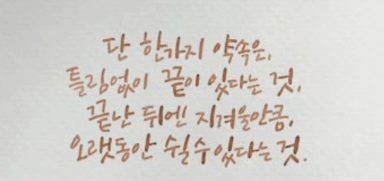 단 한가지 약속은,
틀림없이 끝이 있다는 것,
끝난 뒤엔 지겨울만큼,
오랫동안 쉴 수 있다는 것.